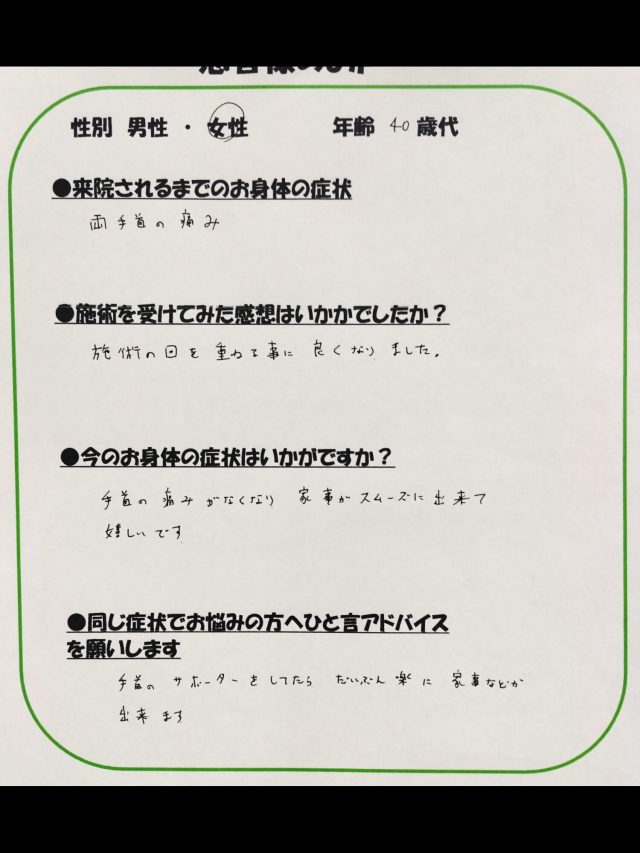 性別 男性 ・ 女性 年齢 40 歳代
●来院されるまでのお身体の症状
両手首の痛み
●施術を受けてみた感想はいかかでしたか？
施術の回を重ねる事に良くなりました。
●今のお身体の症状はいかがですか？
手首の痛みがなくなり 家事がスムーズに出来て
嬉しいです
●同じ症状でお悩みの方へひと言アドバイス
を願いします
手首のサポーターをしてたら だいぶん楽に 家事などが
出来ます